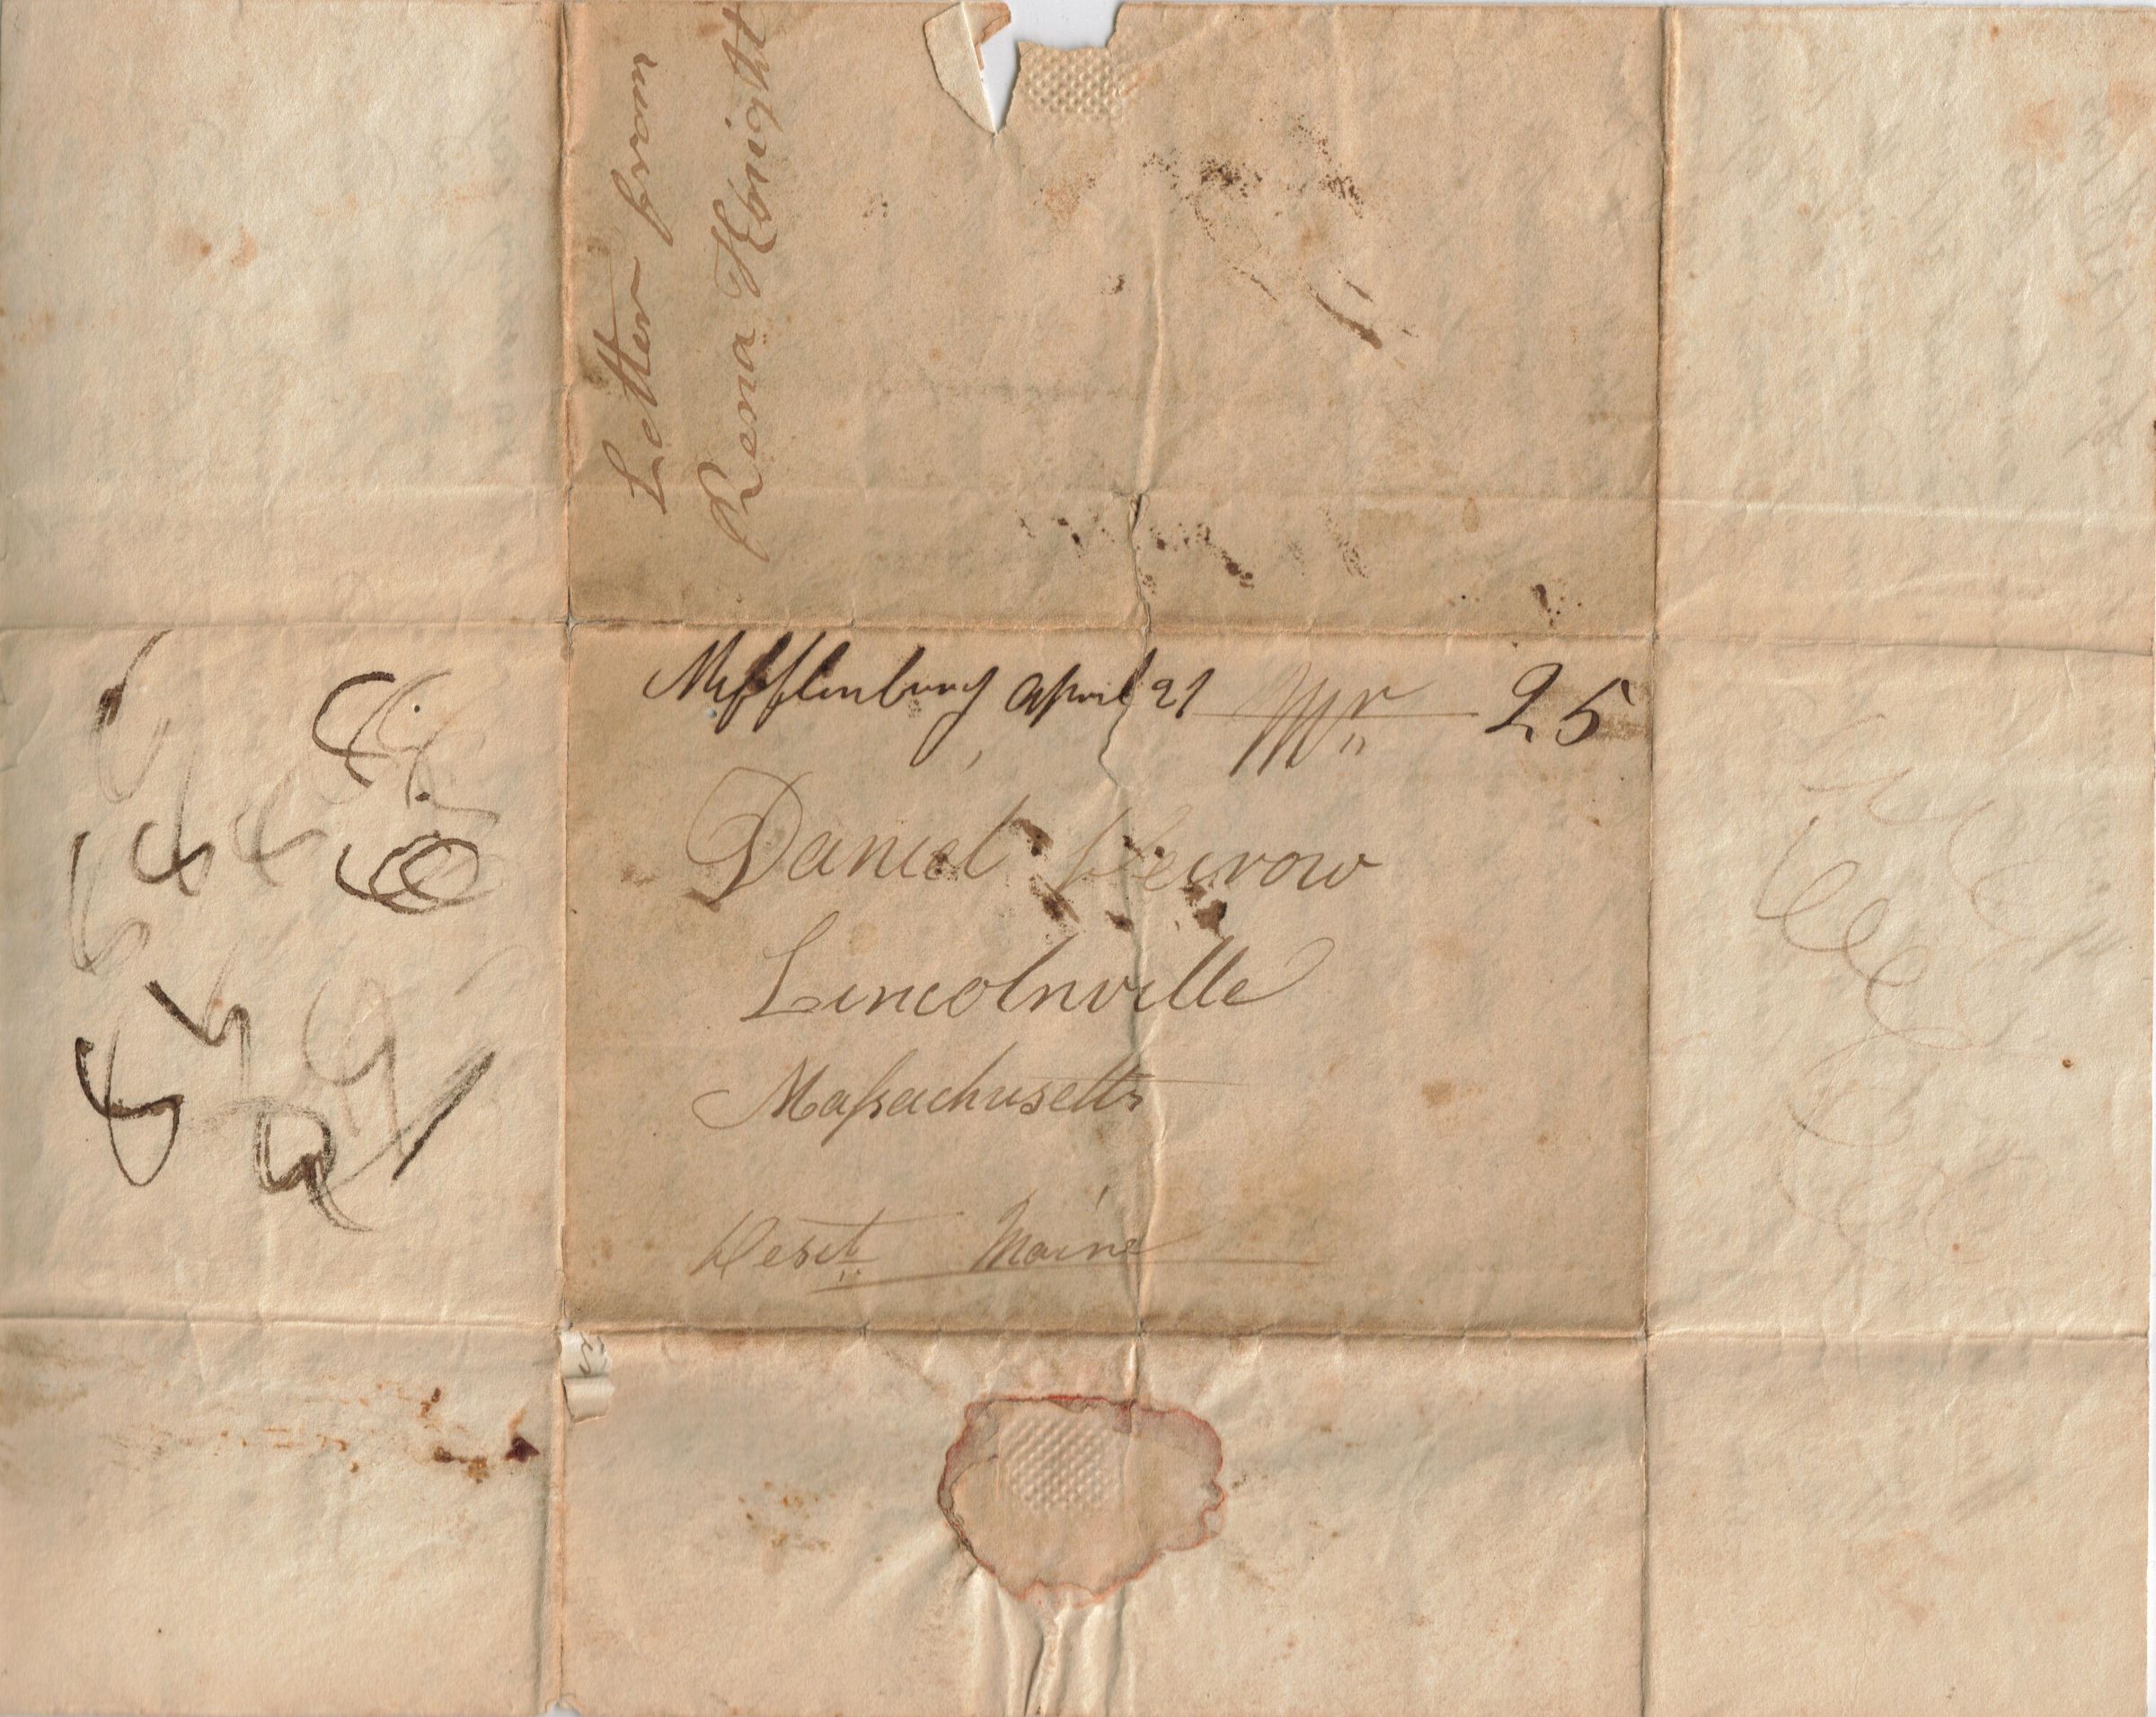 Letter from
Rena Knight
Mifflinburg April 21 Mr 25
Daniel Decrow
Lincolnville
Massachusetts
Maine